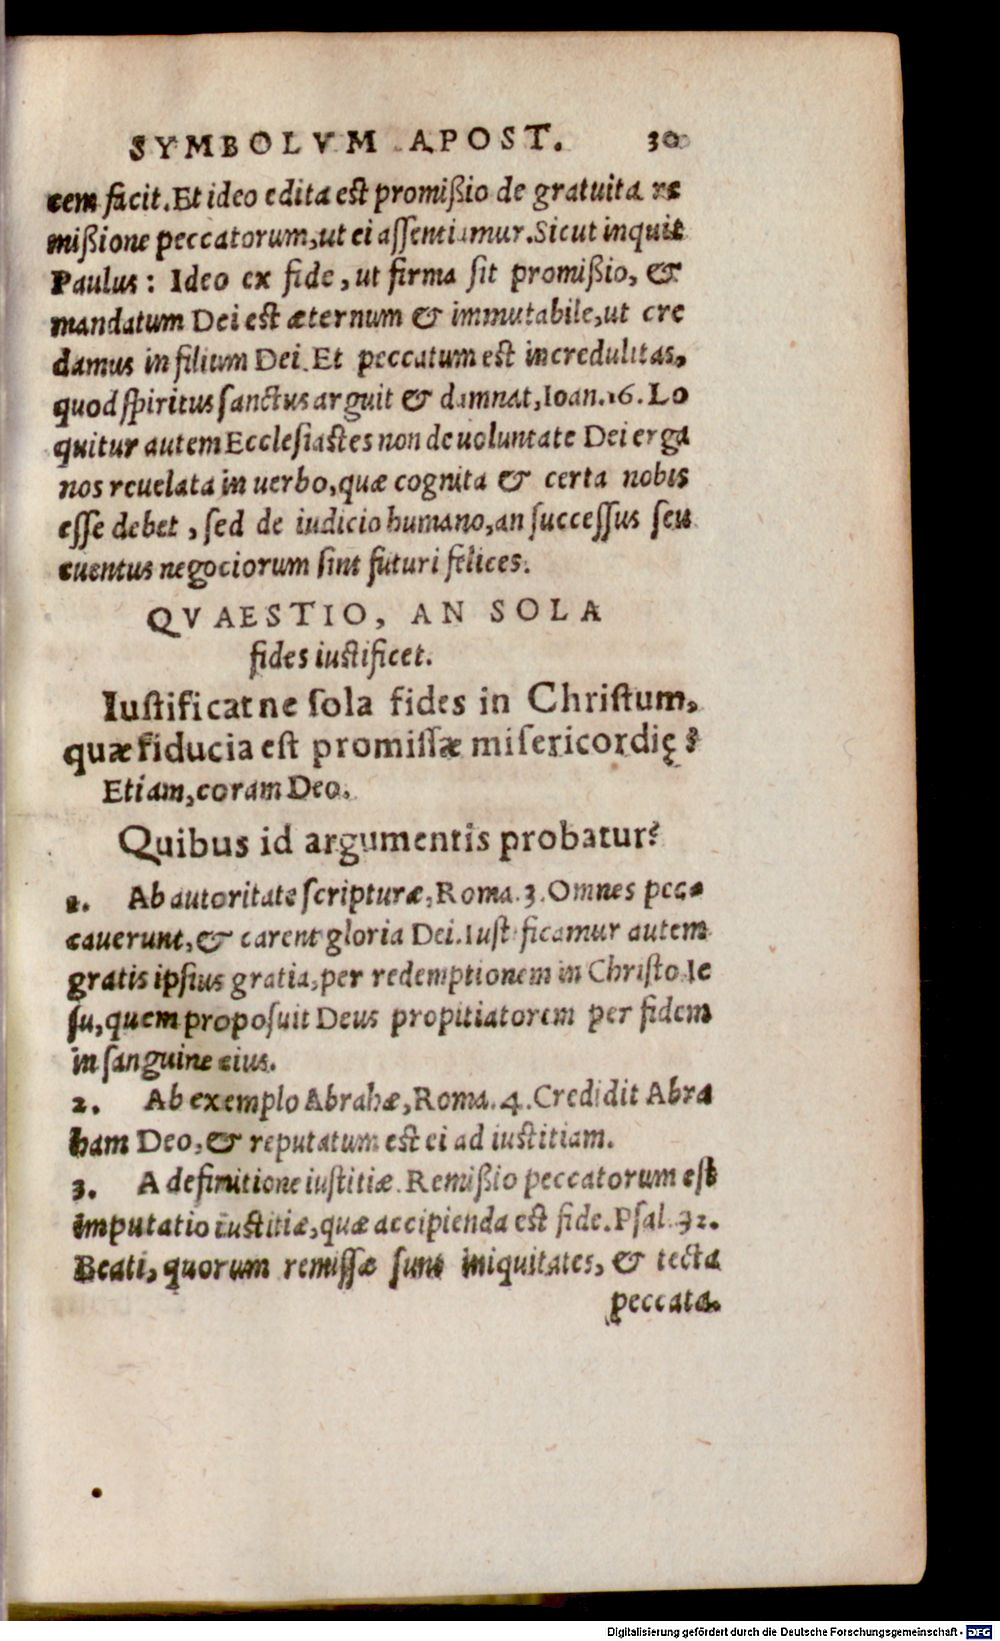 SYMBOLVM APOST. 30
cem facit. Et ideo edita est promißio de gratuita re
mißione peccatorum, ut ei assentiamur. Sicut inquit
Paulus: Ideo ex fide, ut firma sit promißio, &
mandatum Dei est æternum & immutabile, ut cre
damus in filium Dei. Et peccatum est incredulitas,
quod spiritus sanctus arguit & damnat, Ioan. 16. Lo
quitur autem Ecclesiastes non de uoluntate Dei erga
nos reuelata in uerbo, quæ cognita & certa nobis
esse debet, sed de iudicio humano, an successus seu
euentus negociorum sint futuri felices.
QVAESTIO, AN SOLA
fides iustificet.
Iustificatne sola fides in Christum,
quæ fiducia est promissæ misericordię?
Etiam, coram Deo.
Quibus id argumentis probatur?
1. Ab autoritate scripturæ, Roma. 3. Omnes pec-
cauerunt, & carent gloria Dei. Iustificamur autem
gratis ipsius gratia, per redemptionem in Christo Ie
su, quem proposuit Deus propitiatorem per fidem
in sanguine eius.
2. Ab exemplo Abrahæ, Roma. 4. Credidit Abra
ham Deo, & reputatum est ei ad iustitiam.
3. A definitione iustitiæ. Remißio peccatorum est
imputatio iustitiæ, quæ accipienda est fide. Psal. 32.
Beati, quorum remissæ sunt iniquitates, & tecta
peccata.
Digitalisierung gefördert durch die Deutsche Forschungsgemeinschaft - DFG